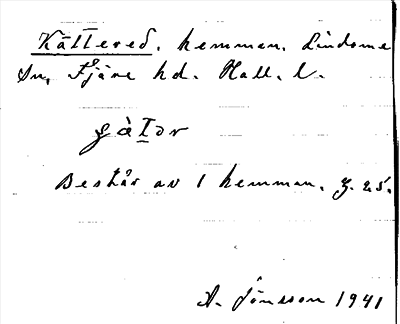 Kättered, hemman, Lindome
sn, Fjäre hd. Hall. l.
gàtor
Består av 1 hemman. J. 25.
A. Jönsson 1941